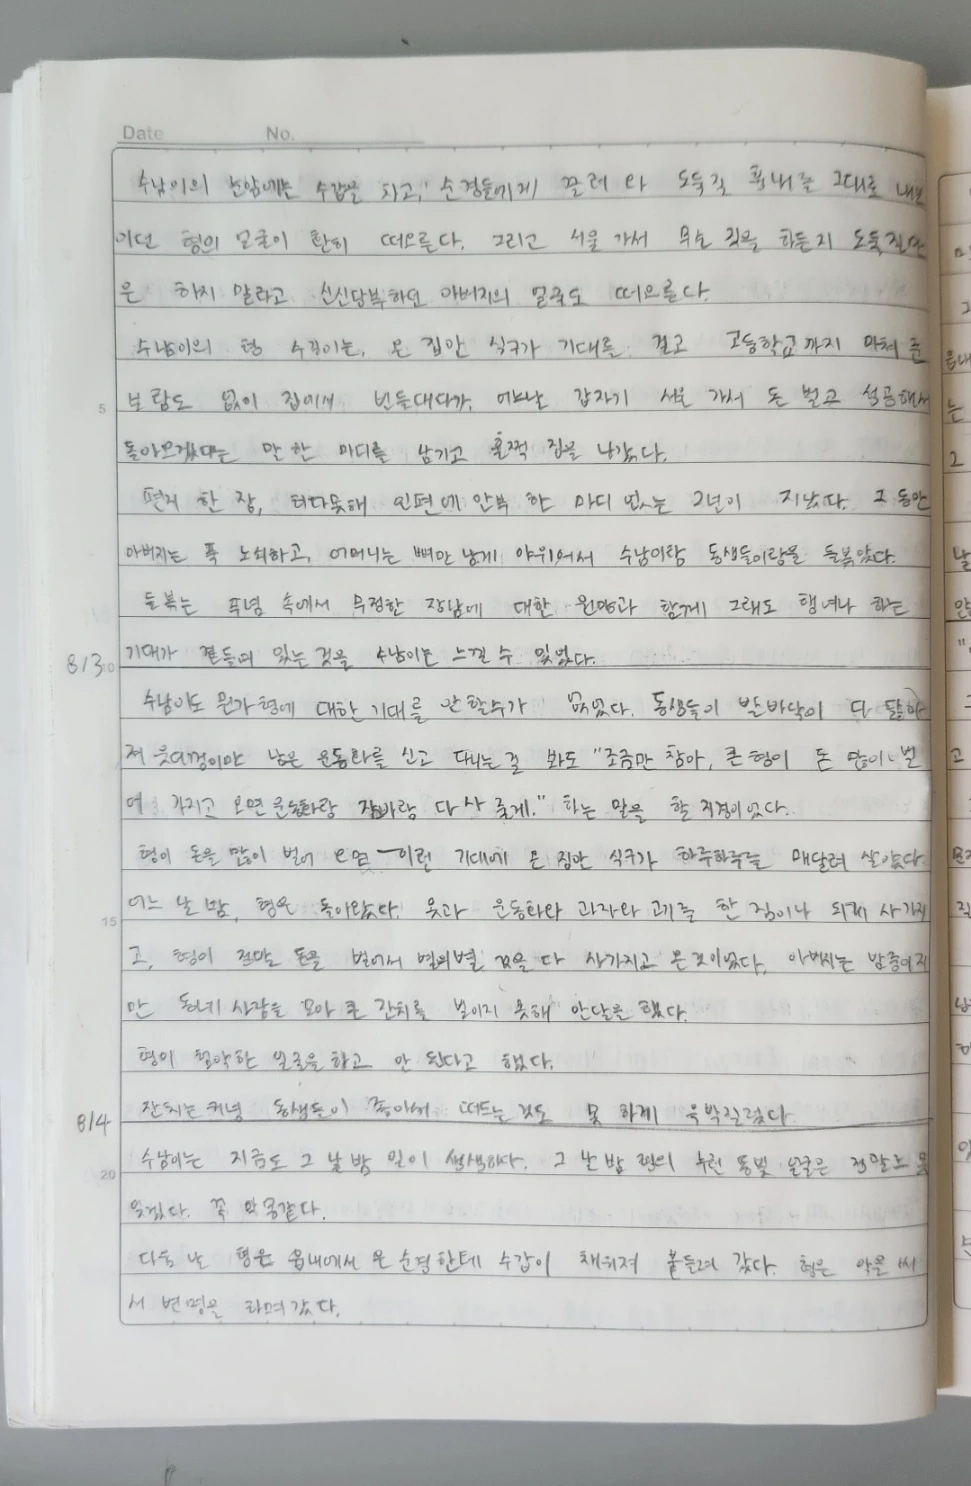 Date No.
수남이의 눈앞에는 수갑을 차고, 순경들에게 끌려 와 도둑질 흉내를 그대로 내보
이던 형의 얼굴이 환히 떠오른다. 그리고 서울 가서 무슨 짓을 하든지 도둑질만
은 하지 말라고 신신당부하던 아버지의 얼굴도 떠오른다.
수남이의 형 수길이는, 온 집안 식구가 기대를 걸고 고등학교까지 마쳐 준
보람도 없이 집에서 빈둥대다가, 어느날 갑자기 서울 가서 돈 벌고 성공해서
돌아오겠다는 말 한 마디를 남기고 훌쩍 집을 나갔다.
편지 한 장, 하다못해 인편에 안부 한 마디 없는 2년이 지났다. 그 동안
아버지는 폭 노쇠하고, 어머니는 뼈만 남게 야위어서 수남이랑 동생들이랑을 들볶았다.
들볶는 푸념 속에서 무정한 장남에 대한 원망과 함께 그래도 행여나 하는
8/3 10 기대가 곁들여 있는 것을 수남이는 느낄 수 있었다.
수남이도 뭔가 형에 대한 기대를 안 할수가 없었다. 동생들이 발바닥이 다 닳아
져 웃더껑이만 남은 운동화를 신고 다니는 걸 봐도 "조금만 참아, 큰 형이 돈 많이 벌
어 가지고 오면 운동화랑 잠바랑 다 사 줄게." 하는 말을 할 지경이었다.
형이 돈을 많이 벌어 오면 — 이런 기대에 온 집안 식구가 하루하루를 매달려 살았다.
15 어느 날 밤, 형은 돌아왔다. 옷과 운동화와 과자와 고기를 한 짐이나 되게 사가지
고, 형이 정말 돈을 벌어서 별의별 것을 다 사가지고 온 것이었다. 아버지는 밤중이지
만 동네 사람을 모아 큰 잔치를 벌이지 못해 안달을 했다.
형이 험악한 얼굴을 하고 안 된다고 했다.
8/4 잔치는커녕 동생들이 좋아서 떠드는 것도 못 하게 윽박질렀다.
20 수남이는 지금도 그 날 밤 일이 생생하다. 그 날 밤 형의 누런 똥빛 얼굴은 정말로 못
잊겠다. 꼭 악몽같다.
다음 날 형은 읍내에서 온 순경한테 수갑이 채워져 붙들려 갔다. 형은 악을 써
서 변명을 하며 갔다.
5